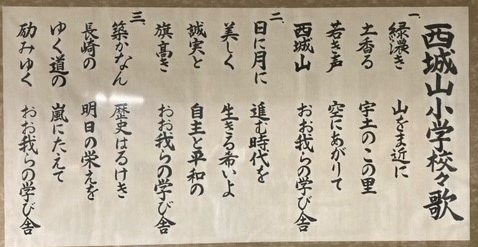 西城山小学校々歌
一、
緑濃き　山をま近に
土香る　宇土のこの里
若き声　空にあがりて
西城山　おお我らの学び舎
二、
日に月に　進む時代を
美しく　生きる希いよ
誠実と　自主と平和の
旗高き　おお我らの学び舎
三、
築かなん　歴史はるけき
長崎の　明日の栄えを
ゆく道の　嵐にたえて
励みゆく　おお我らの学び舎